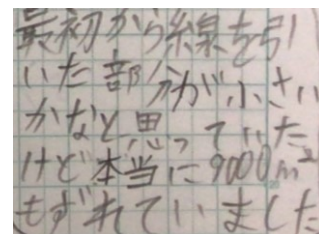 最初から線を引
いた部分が小さい
かなと思っていた
けど本当に9000m²
もずれていました